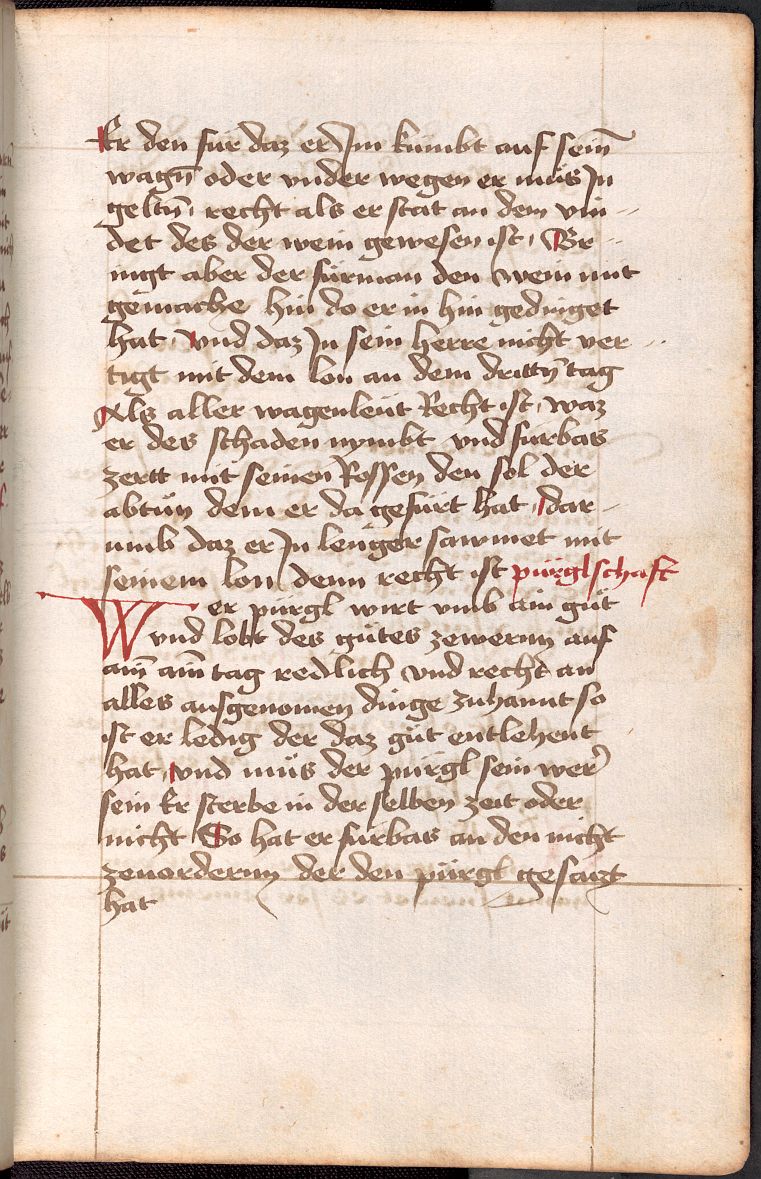 Er den für daz er Im kumbt auf sein̄
wagn̄ oder vnder wegen er müs In
geltn̄ recht als er stat an dem vin
det des der wein gewesen ist, Br
ingt aber der fürman den wein mit
gemache hin do er in hin gedinget
hat, vnd daz In sein herre nicht ver
tigt mit dem lon an dem drittn̄ tag
Als aller wagenleüt Recht ist, waz
er des schaden nymbt vnd fürbas
zertt mit seinen Rossen den sol der
abtün dem er da gefürt hat, dar
umb daz er In lenger sawmet mit
seinem lon denn recht ist pürglschaft
Wer pürgl wirt vmb ain güt
vnd lobt des gütes zewernn auf
ain̄ ain̄ tag redlich vnd recht an
alles ausgenomen dinge zuhannt so
ist er ledig der daz güt entlehent
hat, vnd müs der pürgl sein wer
sein Er sterbe in der selben zeit oder
nicht So hat er fürbas an den nicht
zeuordernn der den pürgl gesatzt
hat